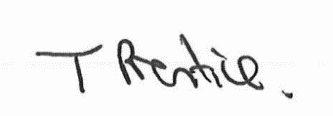 T Prentice.